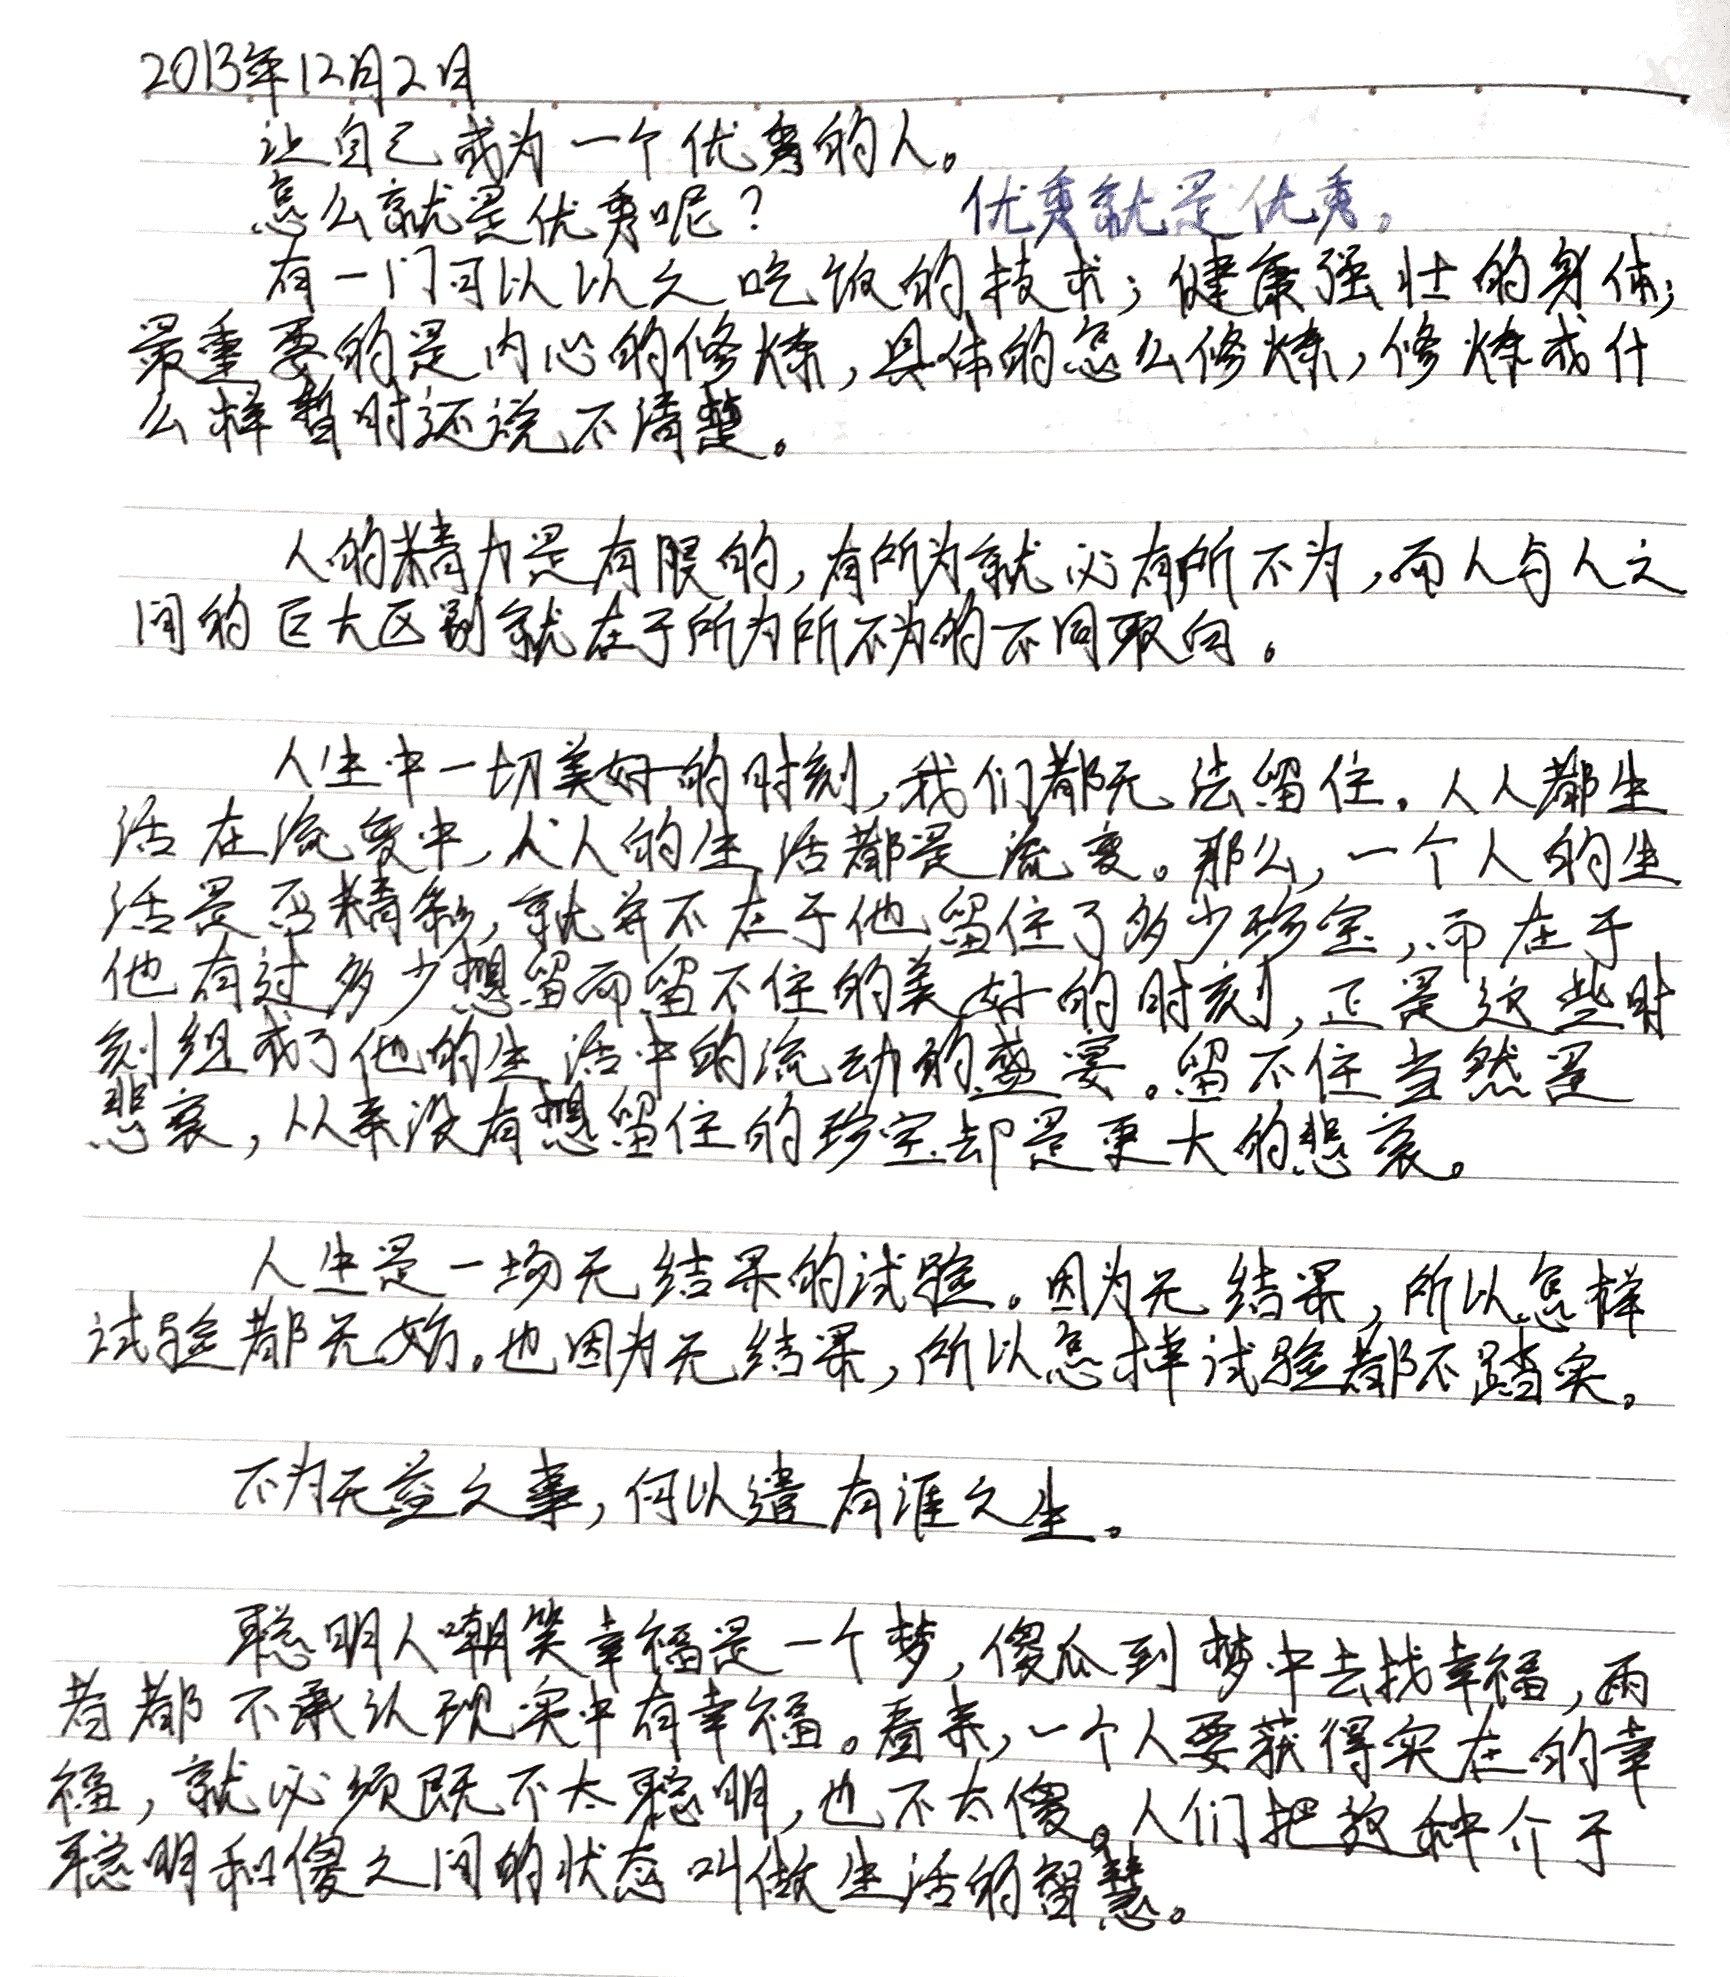 2013年12月2日
让自己成为一个优秀的人。
怎么就是优秀呢？ 优秀就是优秀。
有一门可以以之吃饭的技术；健康强壮的身体；
最重要的是内心的修炼，具体的怎么修炼，修炼成什
么样暂时还说不清楚。
人的精力是有限的，有所为就必有所不为，而人与人之
间的巨大区别就在于所为所不为的不同取向。
人生中一切美好的时刻，我们都无法留住。人人都生
活在流变中，人人的生活都是流变。那么，一个人的生
活是否精彩，就并不在于他留住了多少珍宝，而在于
他有过多少想留而留不住的美好的时刻，正是这些时
刻组成了他的生活中的流动的盛宴。留不住当然是
悲哀，从来没有想留住的珍宝却是更大的悲哀。
人生是一场无结果的试验。因为无结果，所以怎样
试验都无妨。也因为无结果，所以怎样试验都不踏实。
不为无益之事，何以遣有涯之生。
聪明人嘲笑幸福是一个梦，傻瓜到梦中去找幸福，两
者都不承认现实中有幸福。看来，一个人要获得实在的幸
福，就必须既不太聪明，也不太傻。人们把这种介于
聪明和傻之间的状态叫做生活的智慧。